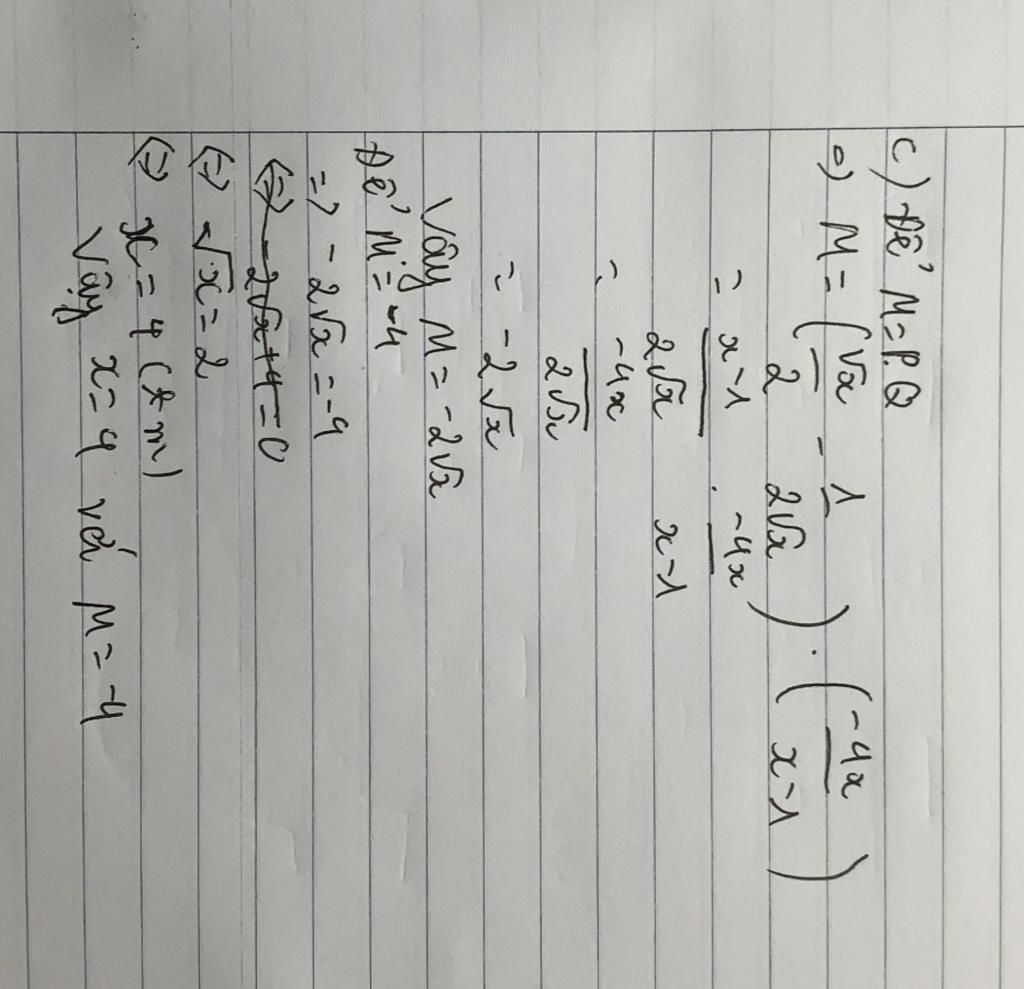 c) Để M = P.Q
=) M = (√x/2 - 1/2√x) . (-4x/x-1)
= x-1/2√x . -4x/x-1
= -4x/2√x
= -2√x
Vậy M = -2√x
Để M = -4
=) -2√x = -4
(=) -2√x+4=0
(=) √x = 2
(=) x = 4 (tm)
Vậy x=4 với M = -4